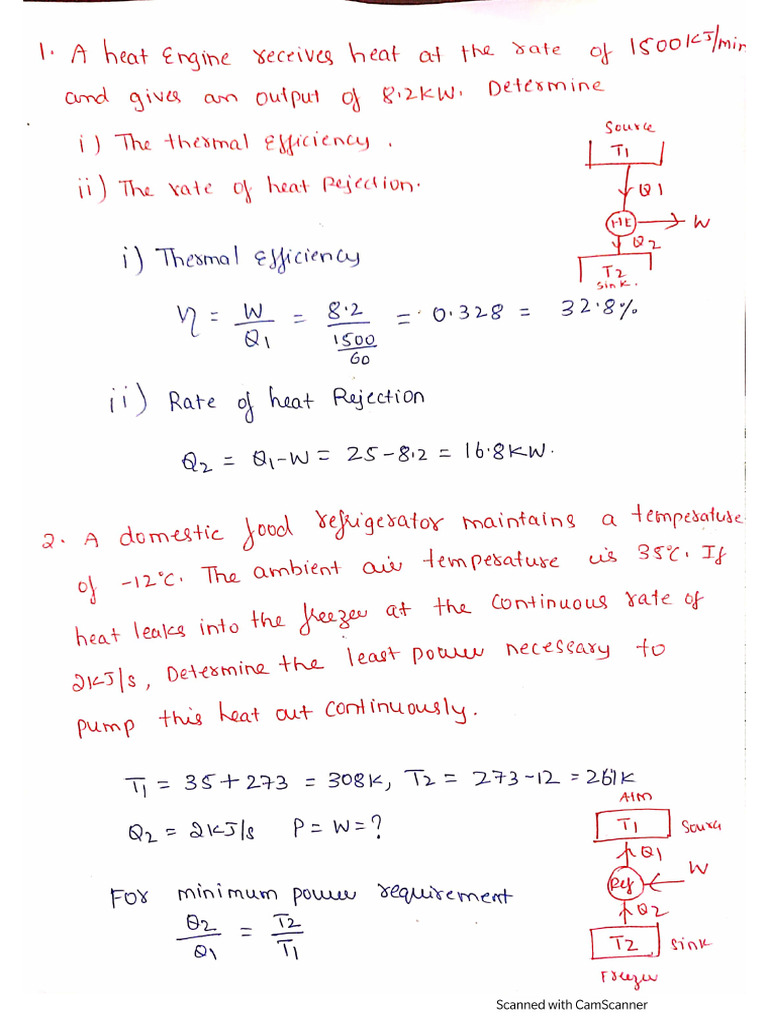 1. A heat Engine receives heat at the rate of 1500KJ/min
and gives an output of 8.2KW. Determine
i) The thermal Efficiency.
ii) The rate of heat Rejection.
Source
T1
Q1
HE
W
Q2
T2
Sink.
i) Thermal Efficiency
η = W/Q1 = 8.2/(1500/60) = 0.328 = 32.8%
ii) Rate of heat Rejection
Q2 = Q1-W = 25-8.2 = 16.8KW.
2. A domestic food refrigerator maintains a temperature
of -12°C. The ambient air temperature is 35°C. If
heat leaks into the freezer at the continuous rate of
2KJ/s, Determine the least power necessary to
pump this heat out continuously.
T1 = 35+273 = 308K, T2 = 273-12 = 261K
Q2 = 2KJ/s P = W = ?
For minimum power requirement
Q2/Q1 = T2/T1
Atm
T1 Source
Q1
Ref W
Q2
T2 Sink
Freezer
Scanned with CamScanner